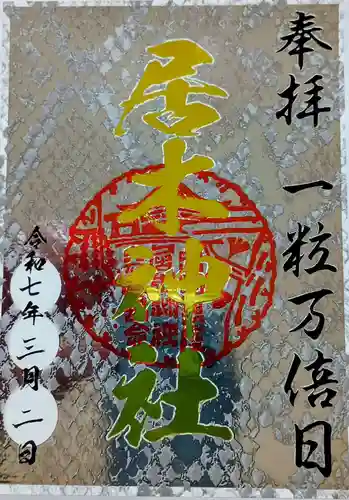 奉拝 一粒万倍日
居木神社
令和七年三月二日